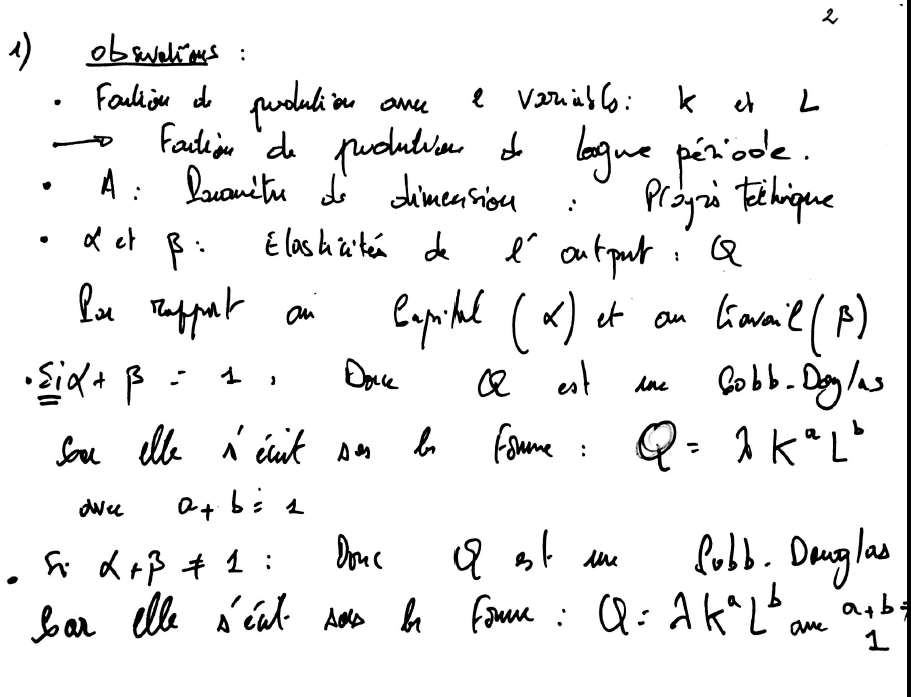 2
1) observations :
• Fonction de production avec 2 variables : K et L
→ Fonction de production de longue période.
• A : Paramètre de dimension : Progrès technique
• α et β : Elasticités de l'output : Q
Par rapport au Capital (α) et au travail (β)
• Si α + β = 1 , Donc Q est une Cobb-Douglas
Car elle s'écrit sous la forme : Q = λ K^a L^b
avec a + b = 1
• Si α + β ≠ 1 : Donc Q est une Cobb-Douglas
Car elle s'écrit sous la forme : Q = λ K^a L^b avec a + b =
1